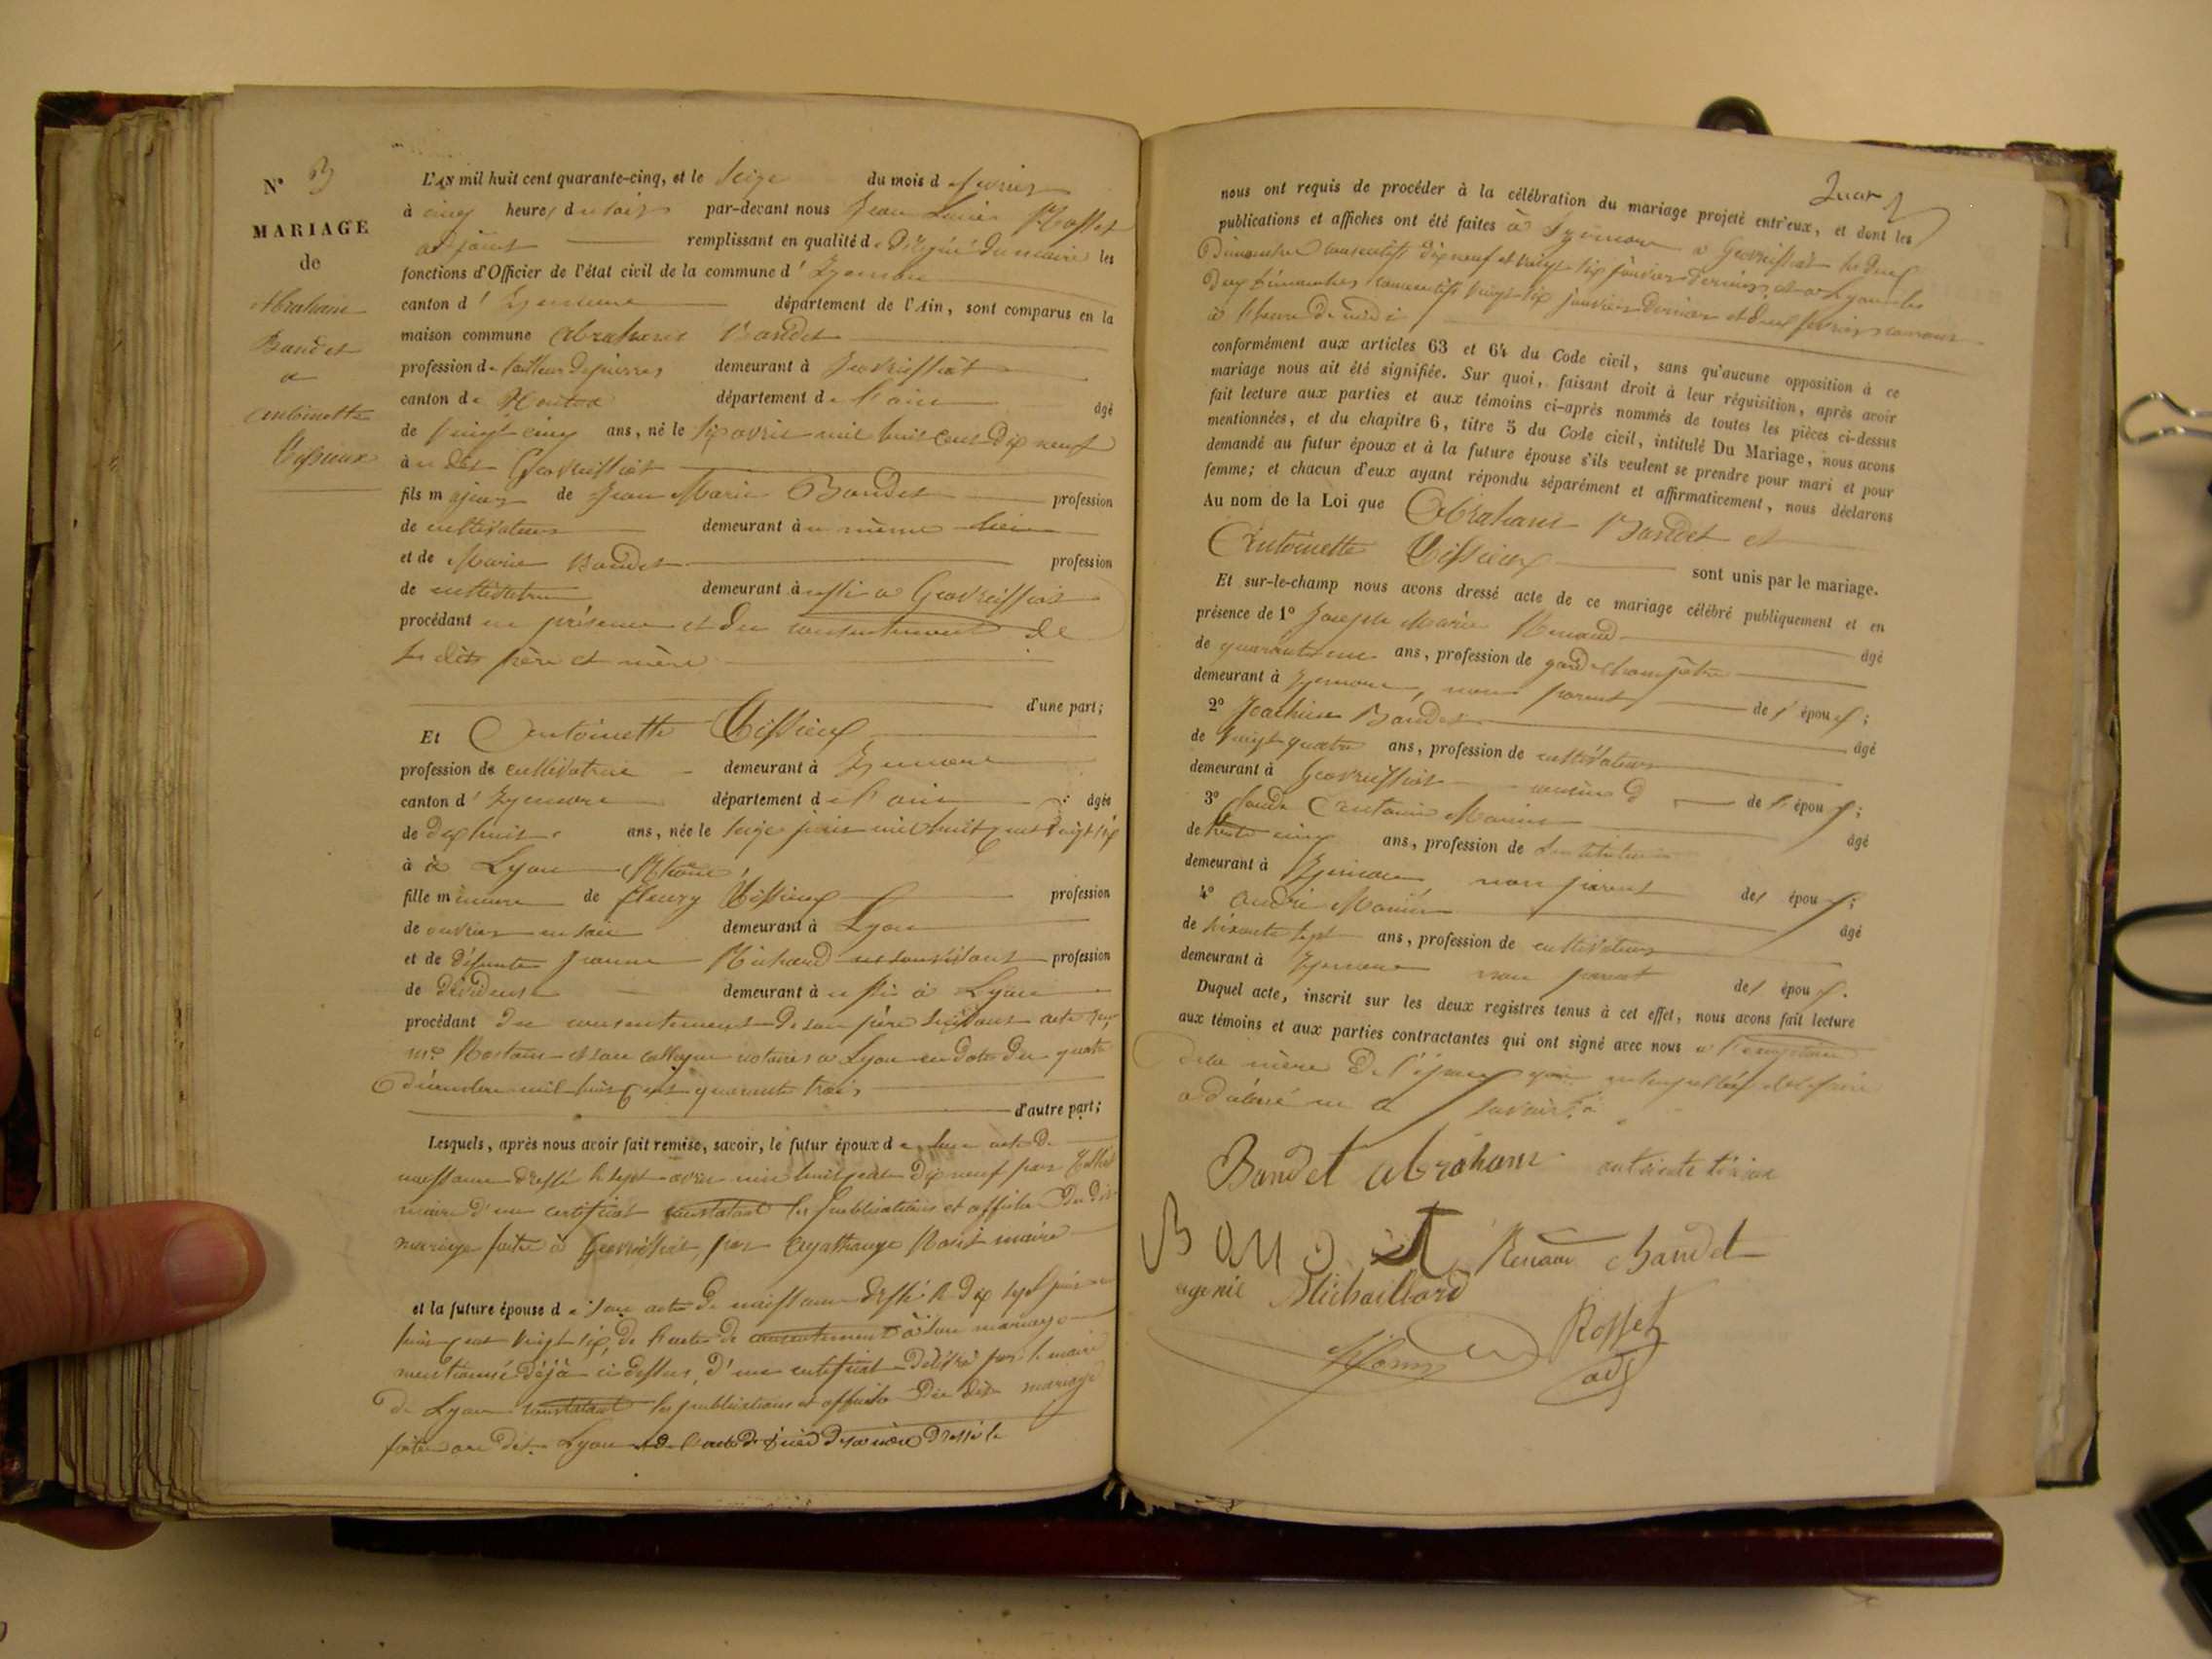 N° 3
MARIAGE
de
Abraham
Bandet
et
antoinette
Tissieux
L'AN mil huit cent quarante-cinq, et le seize du mois de fevrier
à cinq heures du soir par-devant nous Jean Rosset
adjoint remplissant en qualité de délégué du maire les
fonctions d'Officier de l'état civil de la commune d' Izernore
canton d' Izernore département de l'Ain, sont comparus en la
maison commune Abraham Bandet
profession de tailleur de pierres demeurant à Geovreissiat
canton de Nantua département de l'ain âgé
de vingt cinq ans, né le six avril mil huit cent dix neuf
à u dit Geovreissiat
fils majeur de Jean Marie Bandet profession
de cultivateur demeurant à u même lieu
et de Marie Bandet profession
de cultivatrice demeurant à ussi à Geovreissiat
procédant en présence et du consentement de
ses dits père et mère
d'une part;
Et Antoinette Tissieux
profession de cultivatrice demeurant à Izernore
canton d' Izernore département de l'ain âgée
de dix huit ans, née le seize juin mil huit cent vingt six
à à Lyon Rhône
fille mineure de fleury Tissieux profession
de ouvrier en soie demeurant à Lyon
et de défunte Jeanne Richard profession
de dévideuse demeurant à ussi à Lyon
procédant du consentement de son père suivant acte
me et son collègue notaires à Lyon en date du quatre
décembre mil huit cent quarante trois
d'autre part;
Lesquels, après nous avoir fait remise, savoir, le futur époux de son acte de
naissance dressé le sept avril mil huit cent dix neuf par
maire d'un certificat constatant les publications et affiches du dit
mariage faites à Geovreissiat, par maire
et la future épouse de son acte de naissance dressé le dix sept juin
huit cent vingt six, de l'acte de consentement à son mariage
mentionné déjà ci dessus, d'un certificat délivré par le maire
de Lyon constatant les publications et affiches du dit mariage
faites au dit Lyon et de l'acte de décès de sa mère dressé le
nous ont requis de procéder à la célébration du mariage projeté entr'eux, et dont les
publications et affiches ont été faites à Izernore à Geovreissiat les deux
Dimanches consecutifs dix neuf et vingt six janvier dernier, et à Lyon les
deux dimanches consecutifs vingt six janvier dernier et deux fevrier courant
à l'heure de midi
conformément aux articles 63 et 64 du Code civil, sans qu'aucune opposition à ce
mariage nous ait été signifiée. Sur quoi, faisant droit à leur réquisition, après avoir
fait lecture aux parties et aux témoins ci-après nommés de toutes les pièces ci-dessus
mentionnées, et du chapitre 6, titre 5 du Code civil, intitulé Du Mariage, nous avons
demandé au futur époux et à la future épouse s'ils veulent se prendre pour mari et pour
femme; et chacun d'eux ayant répondu séparément et affirmativement, nous déclarons
Au nom de la Loi que Abraham Bandet et
Antoinette Tissieux sont unis par le mariage.
Et sur-le-champ nous avons dressé acte de ce mariage célébré publiquement et en
présence de 1° Joseph Marie Renaud âgé
de quarante ans, profession de garde champêtre
demeurant à Izernore, non parent des époux;
2° Joachim Bandet âgé
de vingt quatre ans, profession de cultivateur
demeurant à Geovreissiat cousin de l'époux;
3° Claude Antoine âgé
de trente cinq ans, profession de Instituteur
demeurant à Izernore non parent des époux;
4° André âgé
de soixante sept ans, profession de cultivateur
demeurant à Izernore non parent des époux.
Duquel acte, inscrit sur les deux registres tenus à cet effet, nous avons fait lecture
aux témoins et aux parties contractantes qui ont signé avec nous à l'exception
de la mère de l'époux qui de le faire
a déclaré ne savoir
Bandet abraham
Renaud Bandet
Michaillard
Rosset
adj